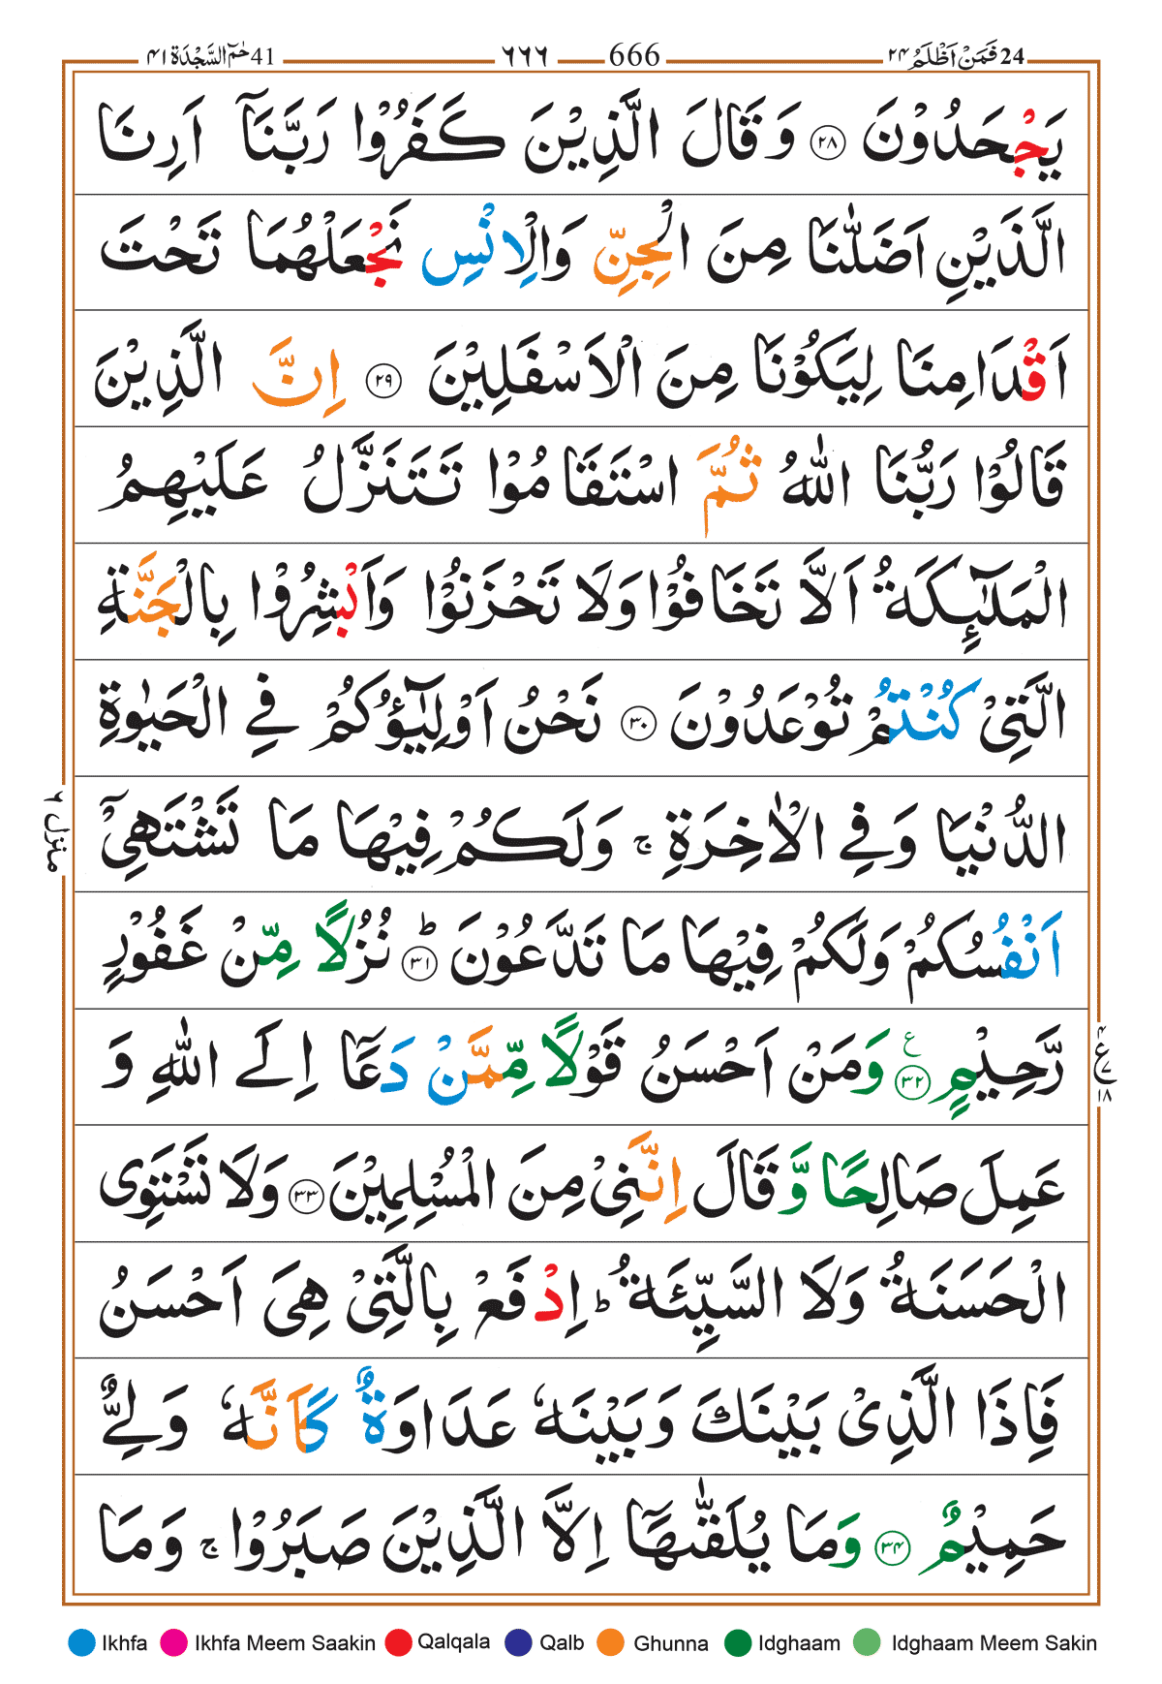 حٰمٓ السَّجْدَة ٤١ 41 ٦٦٦ 666 فَمَنْ اَظْلَمُ ٢٤ 24
يَجْحَدُوْنَ ۝٢٨ وَقَالَ الَّذِيْنَ كَفَرُوْا رَبَّنَاۤ اَرِنَا
الَّذَيْنِ اَضَلّٰنَا مِنَ الْجِنِّ وَالْاِنْسِ نَجْعَلْهُمَا تَحْتَ
اَقْدَامِنَا لِيَكُوْنَا مِنَ الْاَسْفَلِيْنَ ۝٢٩ اِنَّ الَّذِيْنَ
قَالُوْا رَبُّنَا اللّٰهُ ثُمَّ اسْتَقَامُوْا تَتَنَزَّلُ عَلَيْهِمُ
الْمَلٰٓئِكَةُ اَلَّا تَخَافُوْا وَلَا تَحْزَنُوْا وَاَبْشِرُوْا بِالْجَنَّةِ
الَّتِيْ كُنْتُمْ تُوْعَدُوْنَ ۝٣٠ نَحْنُ اَوْلِيٰٓؤُكُمْ فِي الْحَيٰوةِ
الدُّنْيَا وَفِي الْاٰخِرَةِ ۚ وَلَكُمْ فِيْهَا مَا تَشْتَهِيْۤ
اَنْفُسُكُمْ وَلَكُمْ فِيْهَا مَا تَدَّعُوْنَ ؕ۝٣١ نُزُلًا مِّنْ غَفُوْرٍ
رَّحِيْمٍ ۝٣٢ ع وَمَنْ اَحْسَنُ قَوْلًا مِّمَّنْ دَعَاۤ اِلَى اللّٰهِ وَ
عَمِلَ صَالِحًا وَّ قَالَ اِنَّنِيْ مِنَ الْمُسْلِمِيْنَ ۝٣٣ وَلَا تَسْتَوِى
الْحَسَنَةُ وَلَا السَّيِّئَةُ ؕ اِدْفَعْ بِالَّتِيْ هِيَ اَحْسَنُ
فَاِذَا الَّذِيْ بَيْنَكَ وَبَيْنَهٗ عَدَاوَةٌ كَاَنَّهٗ وَلِيٌّ
حَمِيْمٌ ۝٣٤ وَمَا يُلَقّٰىهَاۤ اِلَّا الَّذِيْنَ صَبَرُوْا ۚ وَمَا
منزل ٦
ع ١٨
Ikhfa Ikhfa Meem Saakin Qalqala Qalb Ghunna Idghaam Idghaam Meem Sakin